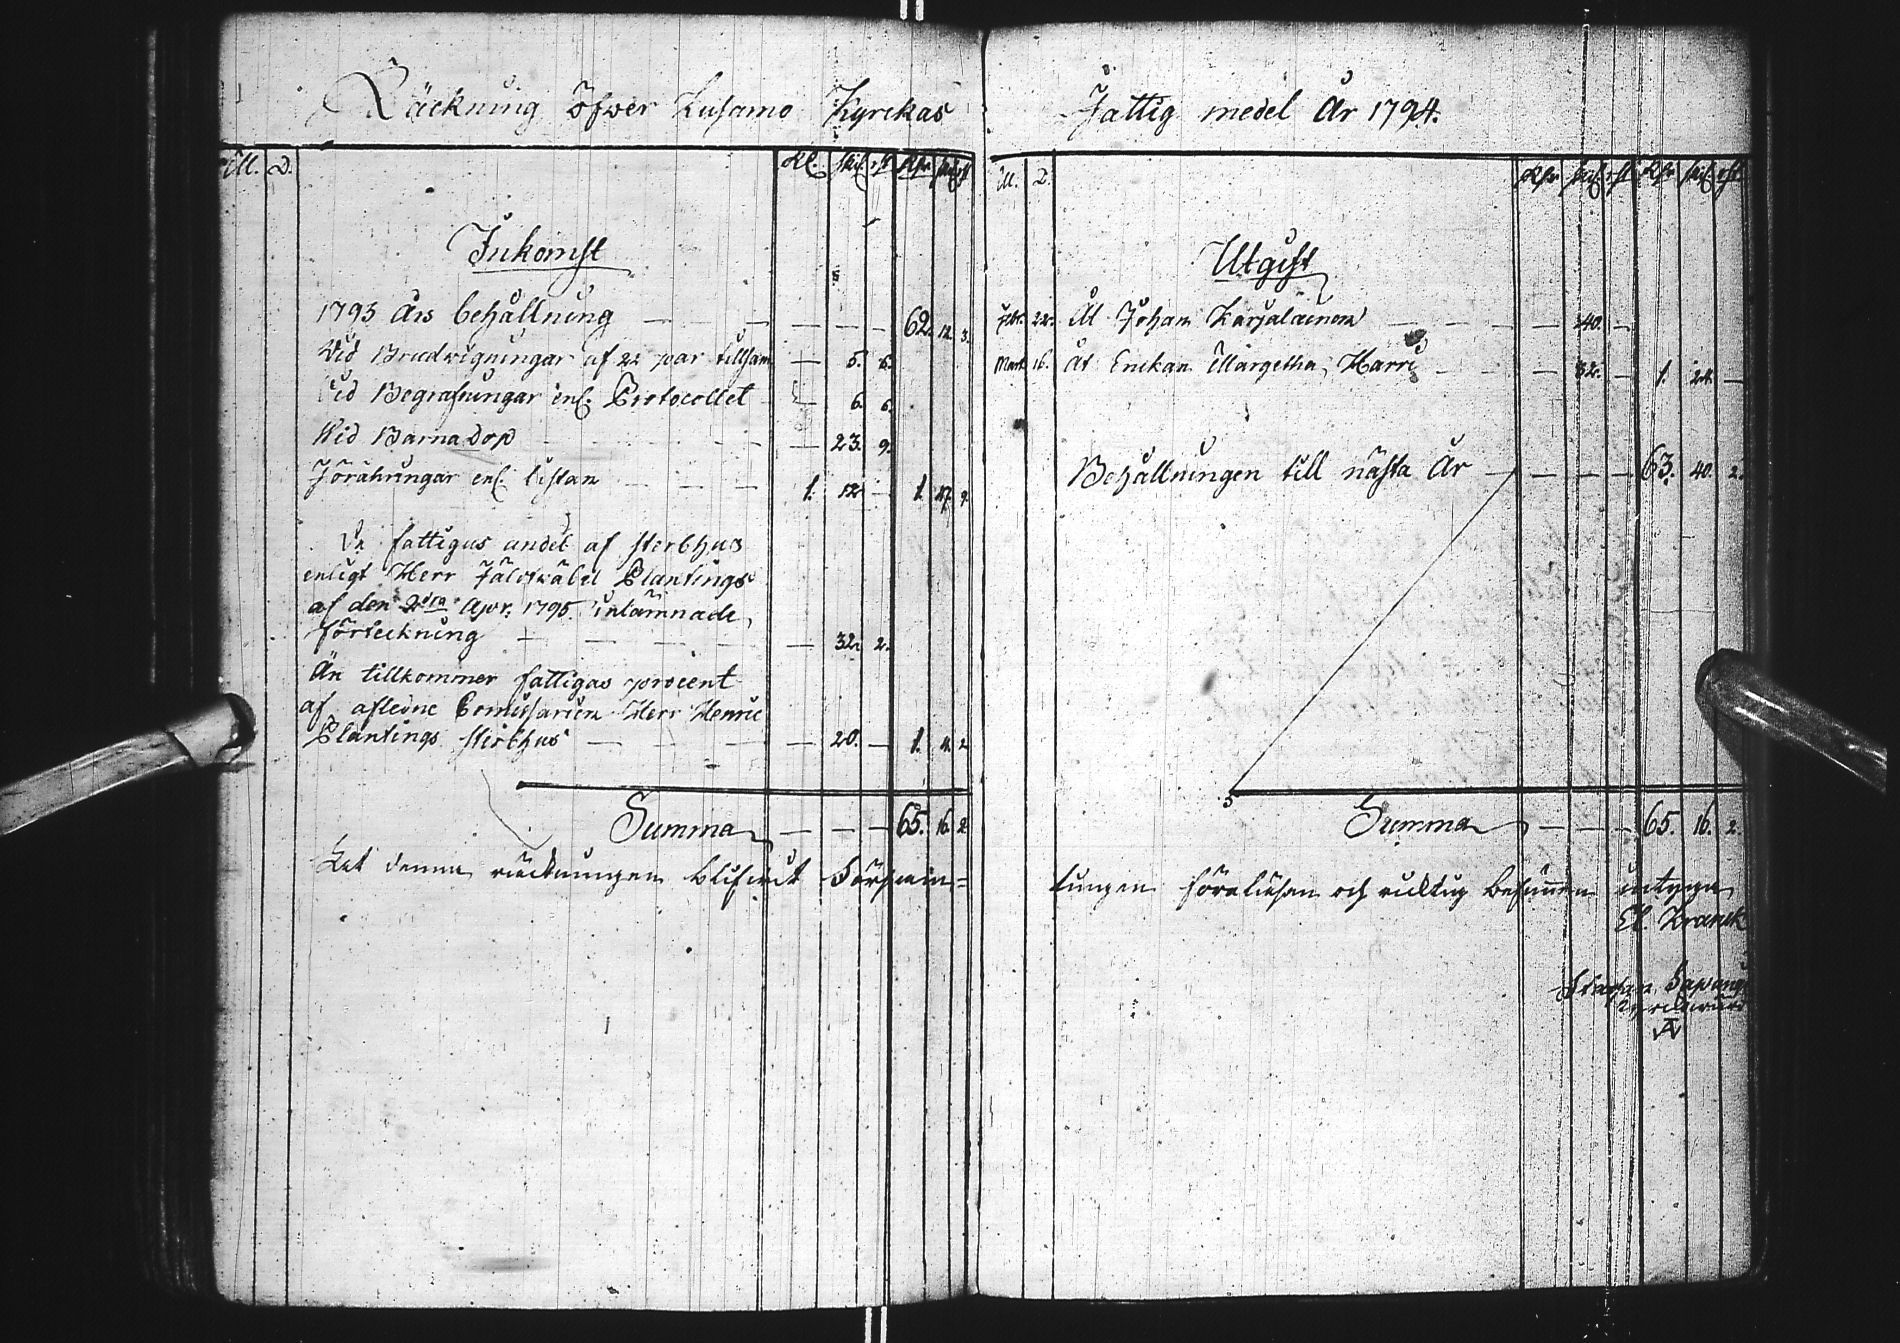 Räckning öfwer Kusamo Kyrckas
M. D. Rd. skil. rst. Rdr skil rst
Inkomst
1793 Års behållning — — — — — — 62. 12. 3.
Vid Brudvigningar af 22 par tillsam — 5. 6.
Vid Begrafningar enl. Protocollet — 6. 6.
Wid Barnadop — — — — — 23. 9.
Föräringar enl. listan — — — 1. 12 — 1. 47. 9.
De fattigas andel af sterbhus
enligt Herr Fältväbel Plantings
af den 2dra Apr. 1795. inlämnade
förteckning — — — — — 32. 2.
Än tillkommer fattigas procent
af afledne Comissarien Herr Henric
Plantings sterbhus — — — — 20. — 1. 4. 2
Summa — — — 65. 16. 2
Att denna räckningen blifwit Församm=
Fattig medel År 1794.
M. D. Rdr skil. rst. Rdr skil. rst.
Utgift
Febr. 22. Åt Johan Karjalainen — — — — 40. —
Mart. 16. Åt Enckan Margetha Harri — — — 32. — 1. 24. —
Behållningen till nästa År — — — — 63. 40. 2.
Summa — — — 65. 16. 2.
lingen föreläsen och richtig befunnen intygar
El. Kranck
Kyrckiowärd